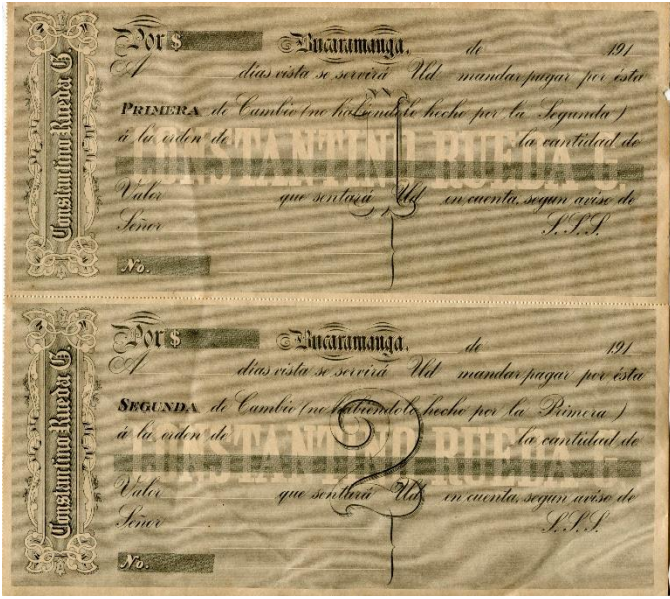 Constantino Rueda G
Por $ Bucaramanga, de 191
A días vista se servirá Ud mandar pagar por ésta
PRIMERA de Cambio (no habiéndolo hecho por la Segunda)
á la orden de la cantidad de
CONSTANTINO RUEDA G.
Valor que sentará Ud en cuenta, segun aviso de
Señor S.S.S.
No.
1
Constantino Rueda G
Por $ Bucaramanga, de 191
A días vista se servirá Ud mandar pagar por ésta
SEGUNDA de Cambio (no habiéndolo hecho por la Primera)
á la orden de la cantidad de
CONSTANTINO RUEDA G.
Valor que sentará Ud en cuenta, segun aviso de
Señor S.S.S.
No.
2